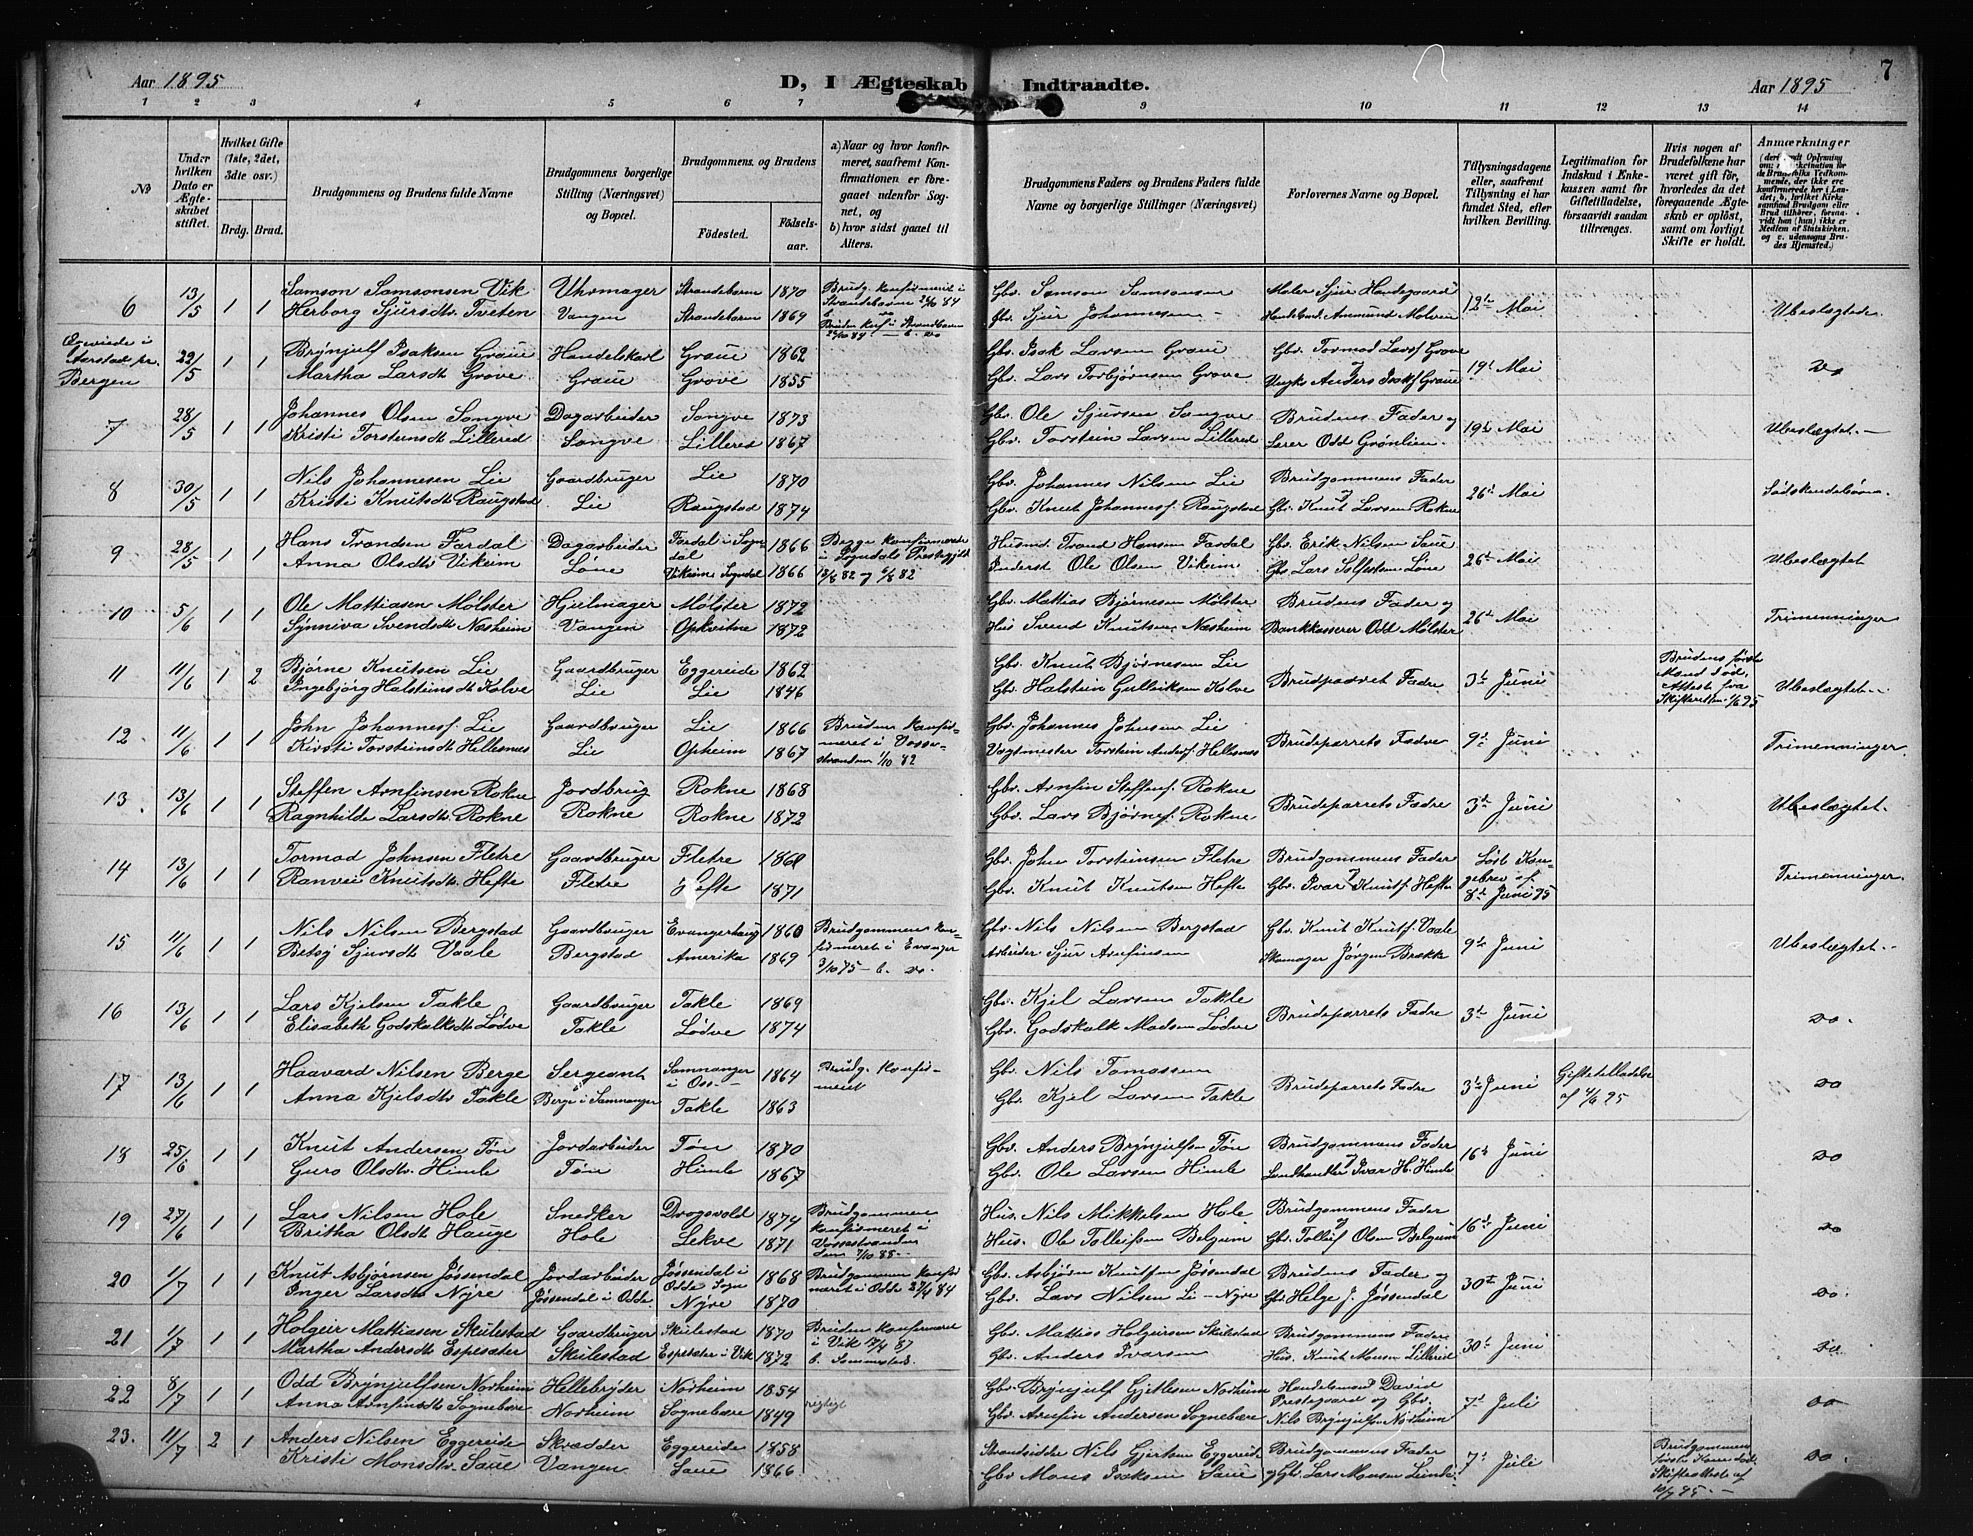 Aar 1895
D, I Ægteskab Indtraadte.
Aar 1895
7
1 2 3 4 5 6 7 9 10 11 12 13 14
No
Under hvilken Dato er Ægteskabet stiftet.
Hvilket Gifte (1ste, 2det, 3die osv.)
Brdg. Brud.
Brudgommens og Brudens fulde Navne
Brudgommens borgerlige Stilling (Næringsvei) og Bopæl.
Brudgommens og Brudens
Fødested.
Fødselsaar.
a) Naar og hvor konfirmeret, saafremt Konfirmationen er foregaaet udenfor Sognet, og
b) hvor sidst gaaet til Alters.
Brudgommens Faders og Brudens Faders fulde Navne og borgerlige Stillinger (Næringsvei)
Forlovernes Navne og Bopæl.
Tillysningsdagene eller, saafremt Tillysning ei har fundet Sted, efter hvilken Bevilling.
Legitimation for Indskud i Enkekassen samt for Giftetilladelse, forsaavidt saadan tiltrænges.
Hvis nogen af Brudefolkene har været gift før, hvorledes da det foregaaende Ægteskab er opløst, samt om lovligt Skifte er holdt.
Anmærkninger
6 13/5 1 1 Samson Samsonsen Vik Uhrmager Strandebarm 1870 Brudg. konfirmeret i Strandebarm Gbr. Samson Samsonsen Maler Sjur Handegaard 12te Mai Ubeslægtede
Herborg Sjursdtr. Tveten Vangen Strandebarm 1869 Gbr. Sjur Johannesen Amund Molven
Bergen 22/5 1 1 Brynjulf Isaksen Graue Handelskarl Graue 1862 Gbr. Isak Larsen Graue Gbr. Tormod Larsf Grove 19d Mai Do
Martha Larsdt Grove Graue Grove 1855 Gbr. Lars Torbjørnsen Grove Ungk. Anders Isaksf Graue
7 28/5 1 1 Johannes Olsen Songve Dagarbeider Songve 1873 Gbr. Ole Sjursen Songve Brudens Fader og 19d Mai Ubeslægtet
Kristi Torsteinsdt Lillered Songve Lillered 1867 Gbr. Torstein Larsen Lillered Lærer Odd Grønlien
8 30/5 1 1 Nils Johannesen Lie Gaardbruger Lie 1870 Gbr. Johannes Nilsen Lie Brudgommens Fader 26d Mai Sødskendebørn
Kristi Knutsdt Raugstad Lie Raugstad 1874 Gbr. Knut Johannesf. Raugstad Gbr. Knut Larsen Rokne
9 28/5 1 1 Hans Trondsen Fardal Dagarbeider Fardal i Sogndal 1866 Begge konfirmerede i Sogndals Prestegjeld Husmd. Trond Hansen Fardal Gbr. Erik Nilsen Saue 26d Mai Ubeslægtet
Anna Olsdtr Vikeim Løne Vikeim Sogndal 1866 Inderst Ole Olsen Vikeim Gbr. Lars Løne
10 5/6 1 1 Ole Mattiasen Mølster Hjulmager Mølster 1872 Gbr. Mattias Bjørnesen Mølster Brudens Fader og 26d Mai Trimenninger
Synniva Svendsdt Næsheim Vangen Opkvitne 1872 Hus Svend Knutsen Næsheim Bankkasserer Odd Mølster
11 11/6 1 2 Bjørne Knutsen Lie Gaardbruger Eggereide 1862 Gbr. Knut Bjørnesen Lie Brudparret Fadre 3d Juni Brudens første Mand død. Attest fra Skifteretten 1/6 95 Ubeslægtet
Ingebjørg Halsteinsdt Kolve Lie Lie 1846 Gbr. Halstein Gulleiksen Kolve
12 11/6 1 1 John Johannesf. Lie Gaardbruger Lie 1866 Bruden konfirmeret i Vossestranden 1/10 82 Gbr. Johannes Johnsen Lie Brudeparrets Fadre 9d Juni Trimenninger
Kirsti Torsteinsdt Hellesnes Lie Opheim 1867 Vagtmester Torstein Andersf. Hellesnes
13 13/6 1 1 Steffen Arnfinsen Rokne Jordbrug Rokne 1868 Gbr. Arnfin Steffensf. Rokne Brudeparrets Fadre 3d Juni Ubeslægtet
Ragnhilde Larsdtr Rokne Rokne Rokne 1872 Gbr. Lars Bjørnef. Rokne
14 13/6 1 1 Tormod Johnsen Fletre Gaardbruger Fletre 1860 Gbr. John Torsteinsen Fletre Brudgommens Fader Løst Kongebrev af 8d Juni 95 Trimenninger
Ranvei Knutsdt. Hefte Fletre Hefte 1871 Gbr. Knut Knutsen Hefte Gbr. Ivar Knutsf. Hefte
15 11/6 1 1 Nils Nilsen Bergstad Gaardbruger Evangerhaug 1860 Brudgommen konfirmeret i Evanger 3/10 75 - b. do. Gbr. Nils Nilsen Bergstad Gbr. Knut Knutsf. Vaale 9d Juni Ubeslægtet
Betsy Sjursdt Vaale Bergstad Amerika 1869 Arbeider Sjur Arnfinsen Skomager Jørgen Brække
16 13/6 1 1 Lars Kjelsen Takle Gaardbruger Takle 1869 Gbr. Kjel Larsen Takle Brudeparrets Fadre 3d Juni do.
Elisabeth Godskalksdt Lødve Takle Lødve 1874 Gbr. Godskalk Madsen Lødve
17 13/6 1 1 Haavard Nilsen Berge Sergeant Samnanger i Oss 1864 Brudg. konfirmeret Gbr. Nils Tomassen Brudeparrets Fadre 3d Juni Giftetilladelse af 4/6 95 do
Anna Kjelsdt Takle Berge i Samnanger Takle 1863 Gbr. Kjel Larsen Takle
18 25/6 1 1 Knut Andersen Tøn Jordarbeider Tøn 1870 Gbr. Anders Brynjulfsen Tøn Brudgommens Fader 16d Juni do
Guro Olsdtr. Himle Tøn Himle 1867 Gbr. Ole Larsen Himle Landhandler Ivar H. Himle
19 27/6 1 1 Lars Nilsen Hole Snedker Drogsvold 1874 Brudgommen konfirmeret i Vossestranden Hus. Nils Mikkelsen Hole Brudgommens Fader 16d Juni do
Britha Olsdt Hauge Hole Lekve 1871 Hus. Ole Tolleifsen Belgum Gbr. Tolleif Olsen Belgum
20 1/7 1 1 Knut Asbjørnsen Jøssendal Jordarbeider Jøssendal i Odde Sogn 1868 Brudgommen konfirmeret i Odde 27/4 84 Gbr. Asbjørn Knutsen Jøssendal Brudens Fader og 30te Juni do.
Inger Larsdt Nyre Jøssendal i Odde Nyre 1870 Gbr. Lars Nilsen Li - Nyre Gbr. Helge J. Jøssendal
21 1/7 1 1 Holgeir Mattiasen Skulestad Gaardbruger Skulestad 1870 Bruden konfirmeret i Vik 17/4 87 b. Sammesteds. Gbr. Mattias Holgeirsen Skulestad Brudgommens Fader 30d Juni do
Martha Andersdt Espesæter Skulestad Espesæter i Vik 1872 Gbr. Anders Ivarsen Hus. Knut Monsen Lillered
22 8/7 1 1 Odd Brynjulfsen Norheim Hellebryder Norheim 1854 rigtigt Gbr. Brynjulf Gjetlesen Norheim Handelsmand David Prestegaard og Gbr. 7d Juli do
Anna Arnfinsdt Sognebøre Norheim Sognebøre 1849 Gbr. Arnfin Andersen Sognebøre Nils Brynjulfsen Norheim
23. 11/7 2 1 Anders Nilsen Eggereide Skrædder Eggereide 1858 Strandsidder Nils Gjertsen Eggereide Brudgommens Fader 7d Juli Brudgommens første Kone død. Skifteattest af 10/7 95. do.
Kristi Monsdtr. Saue Vangen Saue 1866 Gbr. Mons Isaksen Saue og Gbr. Lars Monsen